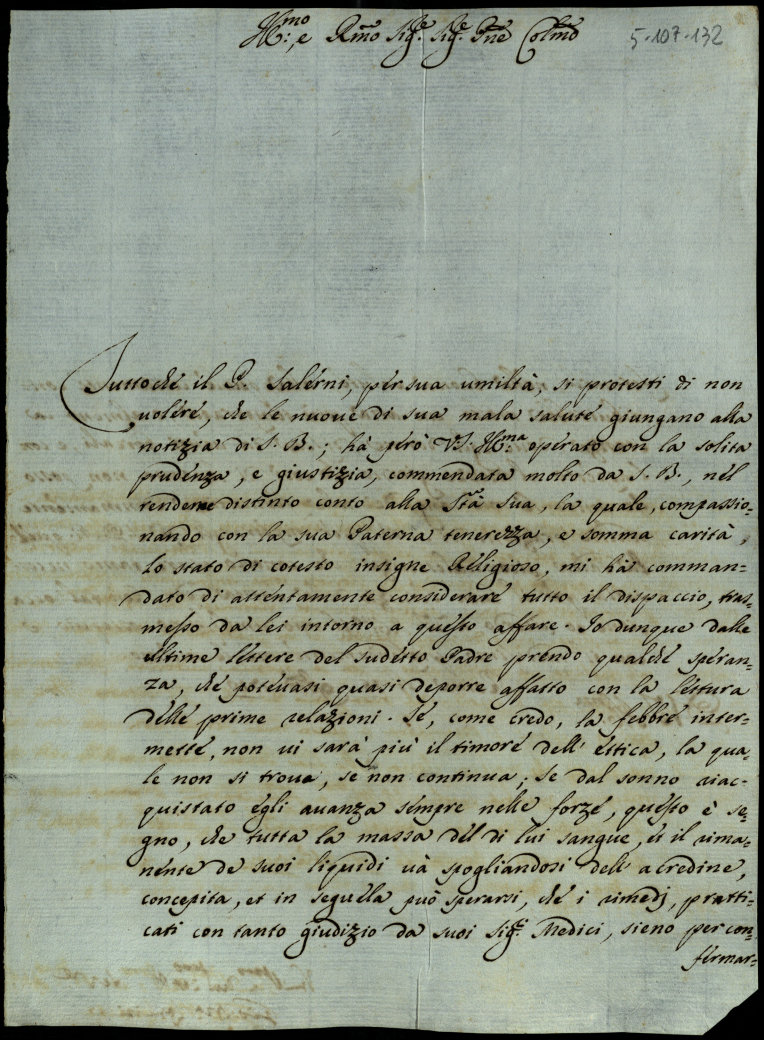 Ill:mo, e Rmo Sig.re Sig.re Pne Colmo
5-107-132
Tuttoché il P. Salerni, per sua umiltà, si protesti di non
volere, che le nuove di sua mala salute giungano alla
notizia di S. B.; hà però VS. Ill:ma operato con la solita
prudenza, e giustizia, commendata molto da S. B., nel
renderne distinto conto alla Stà Sua, la quale, compassio-
nando con la sua Paterna tenerezza, e somma carità,
lo stato di cotesto insigne Religioso, mi hà comman-
dato di attentamente considerare tutto il dispaccio, tras-
messo da lei intorno a questo affare. Io dunque dalle
ultime lettere del sudetto Padre prendo qualche speran-
za, che potevasi quasi deporre affatto con la lettura
delle prime relazioni. Se, come credo, la febbre inter-
mette, non vi sarà più il timore dell' etica, la qua-
le non si trova, se non continua; se dal sonno riac-
quistato egli avanza sempre nelle forze, questo è se-
gno, che tutta la massa del di lui sangue, et il rima-
nente de suoi liquidi và spogliandosi dell' acredine,
concepita, et in sequela può sperarsi, che i rimedj, pratti-
cati con tanto giudizio da suoi Sig.ri Medici, sieno per con-
fermar-